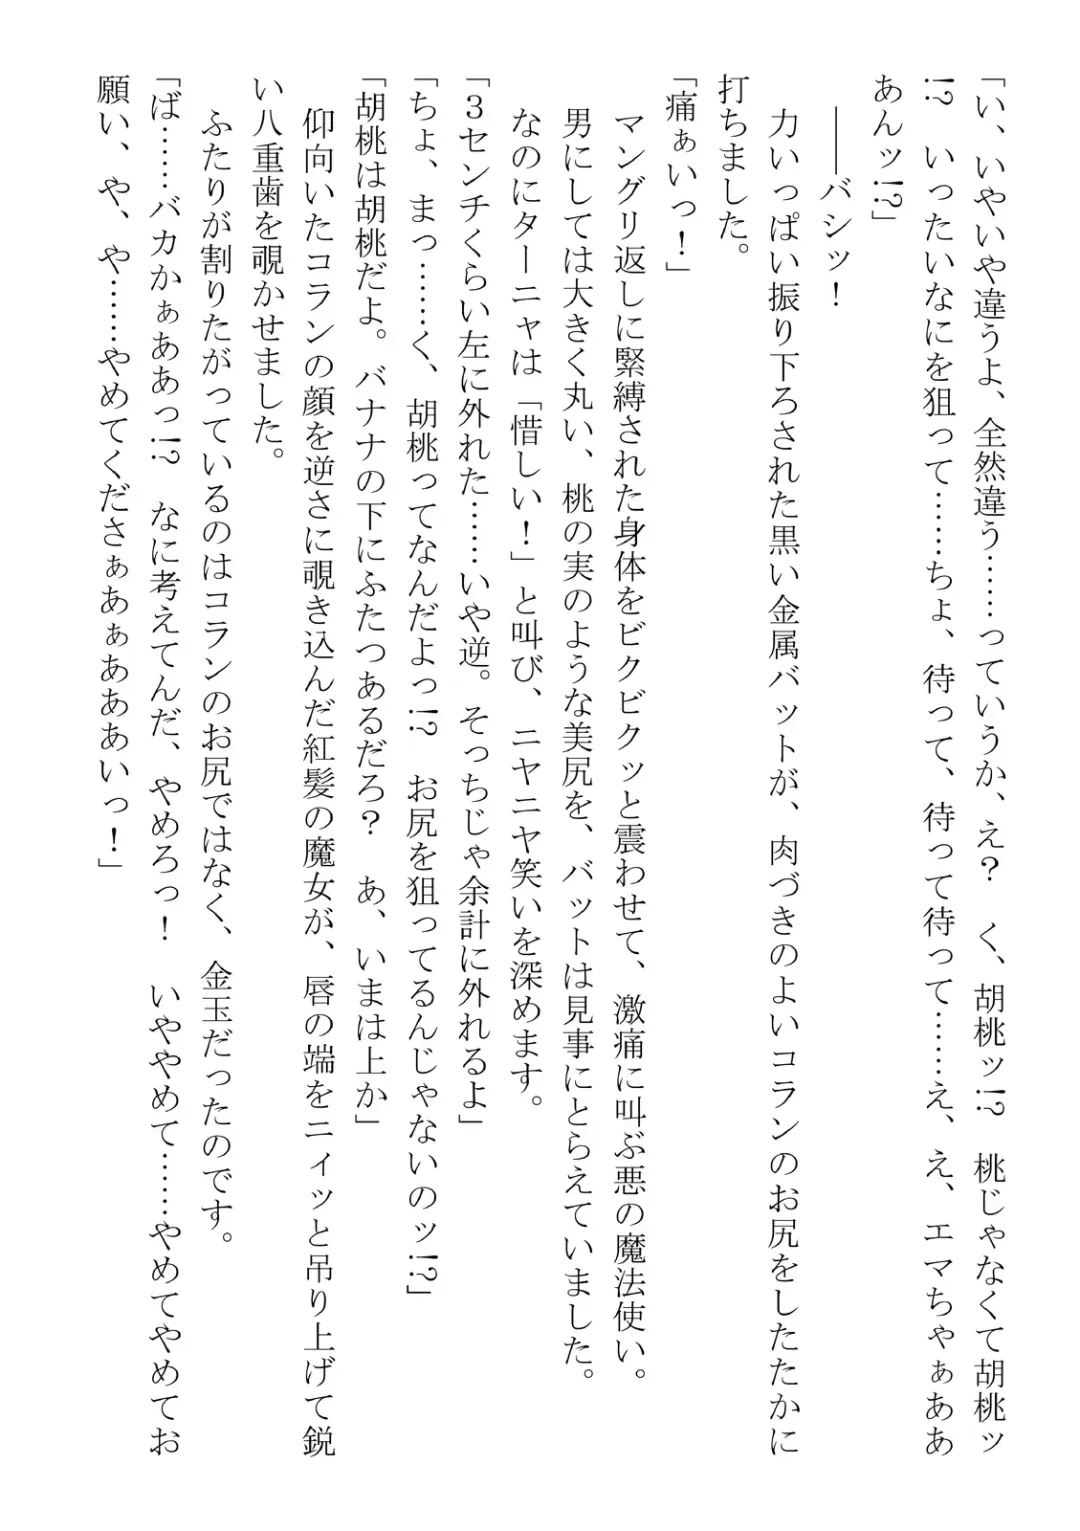 「い、いやいや違うよ、全然違う……っていうか、え?　く、胡桃ッ!?　桃じゃなくて胡桃ッ
!?　いったいなにを狙って……ちょ、待って、待って待って……え、え、エマちゃぁああ
あんッ!?」
　――バシッ！
　力いっぱい振り下ろされた黒い金属バットが、肉づきのよいコランのお尻をしたたかに
打ちました。
「痛ぁいっ！」
　マングリ返しに緊縛された身体をビクビクッと震わせて、激痛に叫ぶ悪の魔法使い。
　男にしては大きく丸い、桃の実のような美尻を、バットは見事にとらえていました。
　なのにターニャは「惜しい！」と叫び、ニヤニヤ笑いを深めます。
「３センチくらい左に外れた……いや逆。そっちじゃ余計に外れるよ」
「ちょ、まっ……く、胡桃ってなんだよっ!?　お尻を狙ってるんじゃないのッ!?」
「胡桃は胡桃だよ。バナナの下にふたつあるだろ？　あ、いまは上か」
　仰向いたコランの顔を逆さに覗き込んだ紅髪の魔女が、唇の端をニィッと吊り上げて鋭
い八重歯を覗かせました。
　ふたりが割りたがっているのはコランのお尻ではなく、金玉だったのです。
「ば……バカかぁああっ!?　なに考えてんだ、やめろっ！　いややめて……やめてやめてお
願い、や、や……やめてくださぁあぁああいっ！」